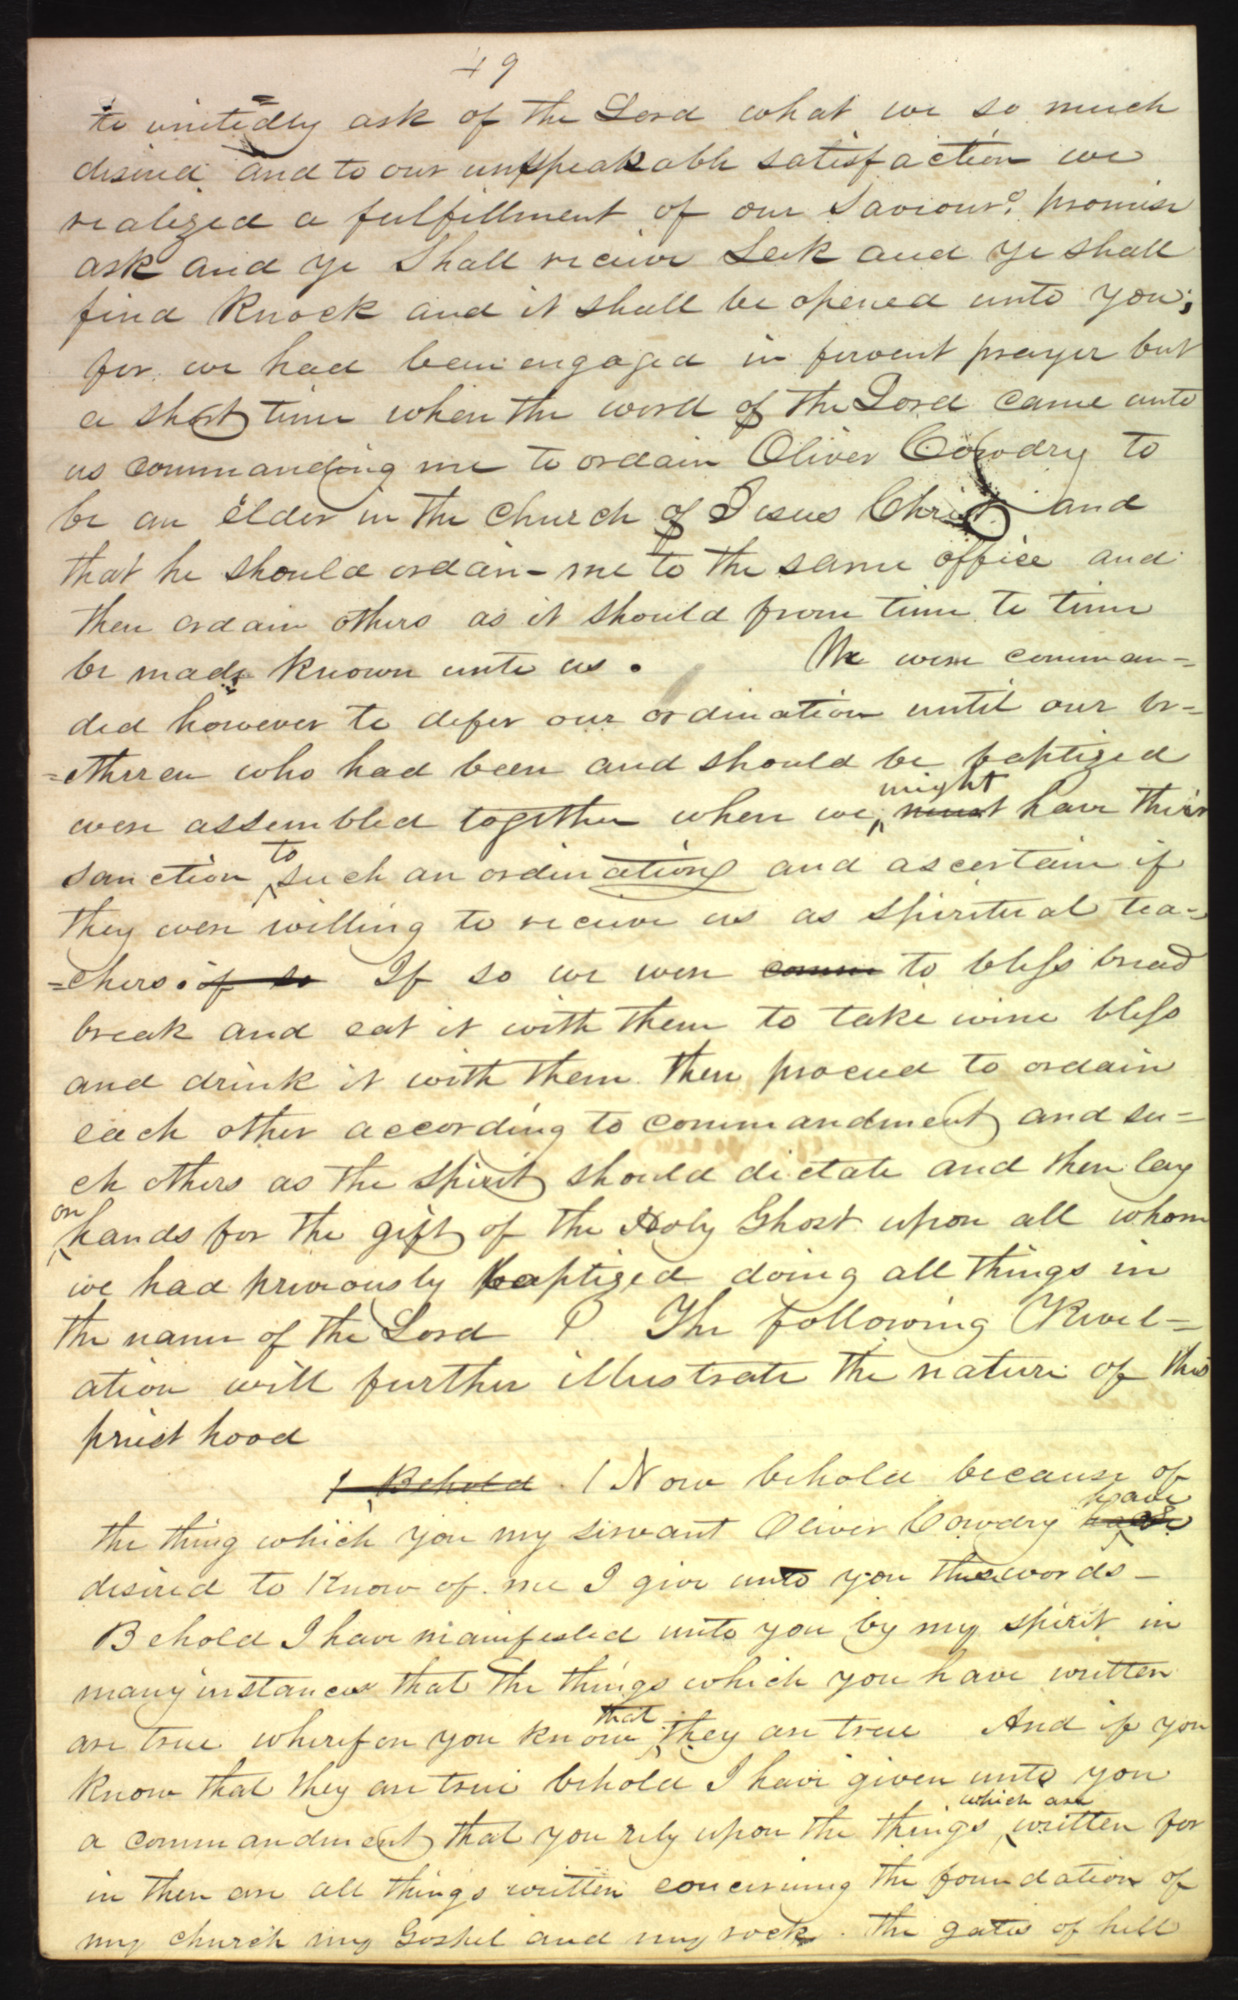 49
to unitedly ask of the Lord what we so much
disired and to our unspeakable satisfaction we
realized a fulfillment of our Saviours promise
ask and ye Shall recieve Seek and ye shall
find Knock and it shall be opened unto you;
for we had been engaged in fervent prayer but
a short time when the word of the Lord came unto
us commanding me to ordain Oliver Cowdry to
be an Elder in the Church of Jesus Christ and
that he should ordain- me to the same office and
then ordain others as it should from time to time
be made known unto us. We were comman=
ded however to defer our ordination until our br=
=ethren who had been and should be baptized
were assembled together when we might must have their
sanction to such an ordination and ascertain if
they were willing to recieve us as spiritual tea=
=chers. if so If so we were comm to bless bread
break and eat it with them to take wine bless
and drink it with them then proceed to ordain
each other according to commandment and su=
ch others as the spirit should dictate and then lay
on hands for the gift of the Holy Ghost upon all whom
we had previously baptized doing all things in
the name of the Lord The following Revel=
ation will further illustrate the nature of this
priest hood
1 Behold 1 Now behold because of
the thing which you my servant Oliver Cowdry have
desired to know of me I give unto you these words-
Behold I have manifested unto you by my spirit in
many instances that the things which you have written
are true wherefore you know that they are true And if you
know that they are true behold I have given unto you
a commandment that you rely upon the things which are written for
in them are all things written concerning the foundation of
my church my Gospel and my rock. the gates of hell